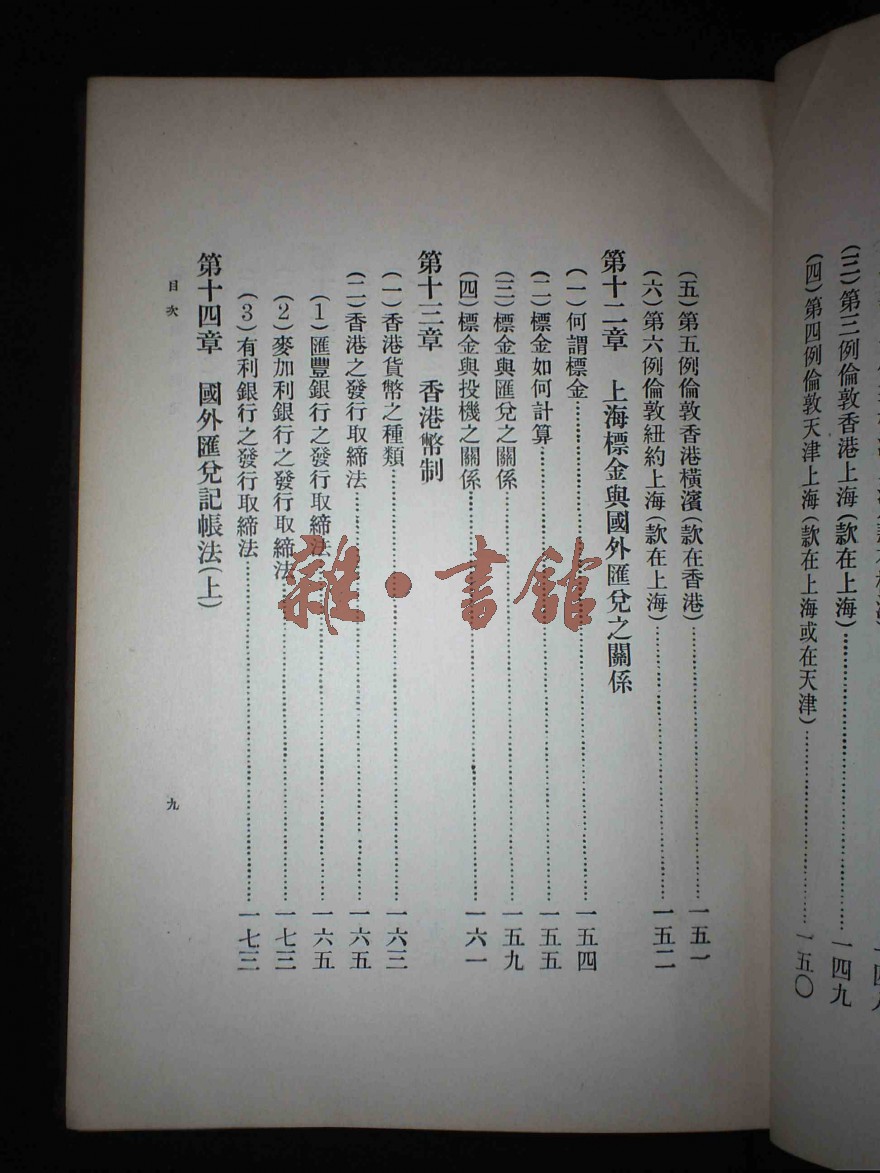 (三)第三例倫敦香港上海(款在上海)……一四九
(四)第四例倫敦天津上海(款在上海或在天津)……一五〇
(五)第五例倫敦香港橫濱(款在香港)……一五一
(六)第六例倫敦紐約上海(款在上海)……一五二
第十二章 上海標金與國外匯兌之關係
(一)何謂標金……一五四
(二)標金如何計算……一五五
(三)標金與匯兌之關係……一五九
(四)標金與投機之關係……一六一
第十三章 香港幣制
(一)香港貨幣之種類……一六三
(二)香港之發行取締法……一六五
(1)匯豐銀行之發行取締法……一六五
(2)麥加利銀行之發行取締法……一七三
(3)有利銀行之發行取締法……一七三
第十四章 國外匯兌記帳法(上)
目次
九
雜·書館